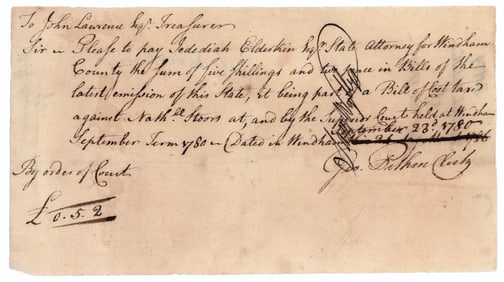 To John Lawrence Esqr. Treasurer
Sir ~ Please to pay Jedediah Elderkin Esqr. State Attorney for Windham
County the sum of five shillings and two pence in Bills of the
latest emission of this State, it being part of a Bill of Cost taxed
against Nathll. Storrs at, and by the Superior Court held at Windham
September Term 1780 ~ Dated in Windham September 23d. 1780
Geo. Pitkin Clerk
By order of Court
£ 0. 5. 2